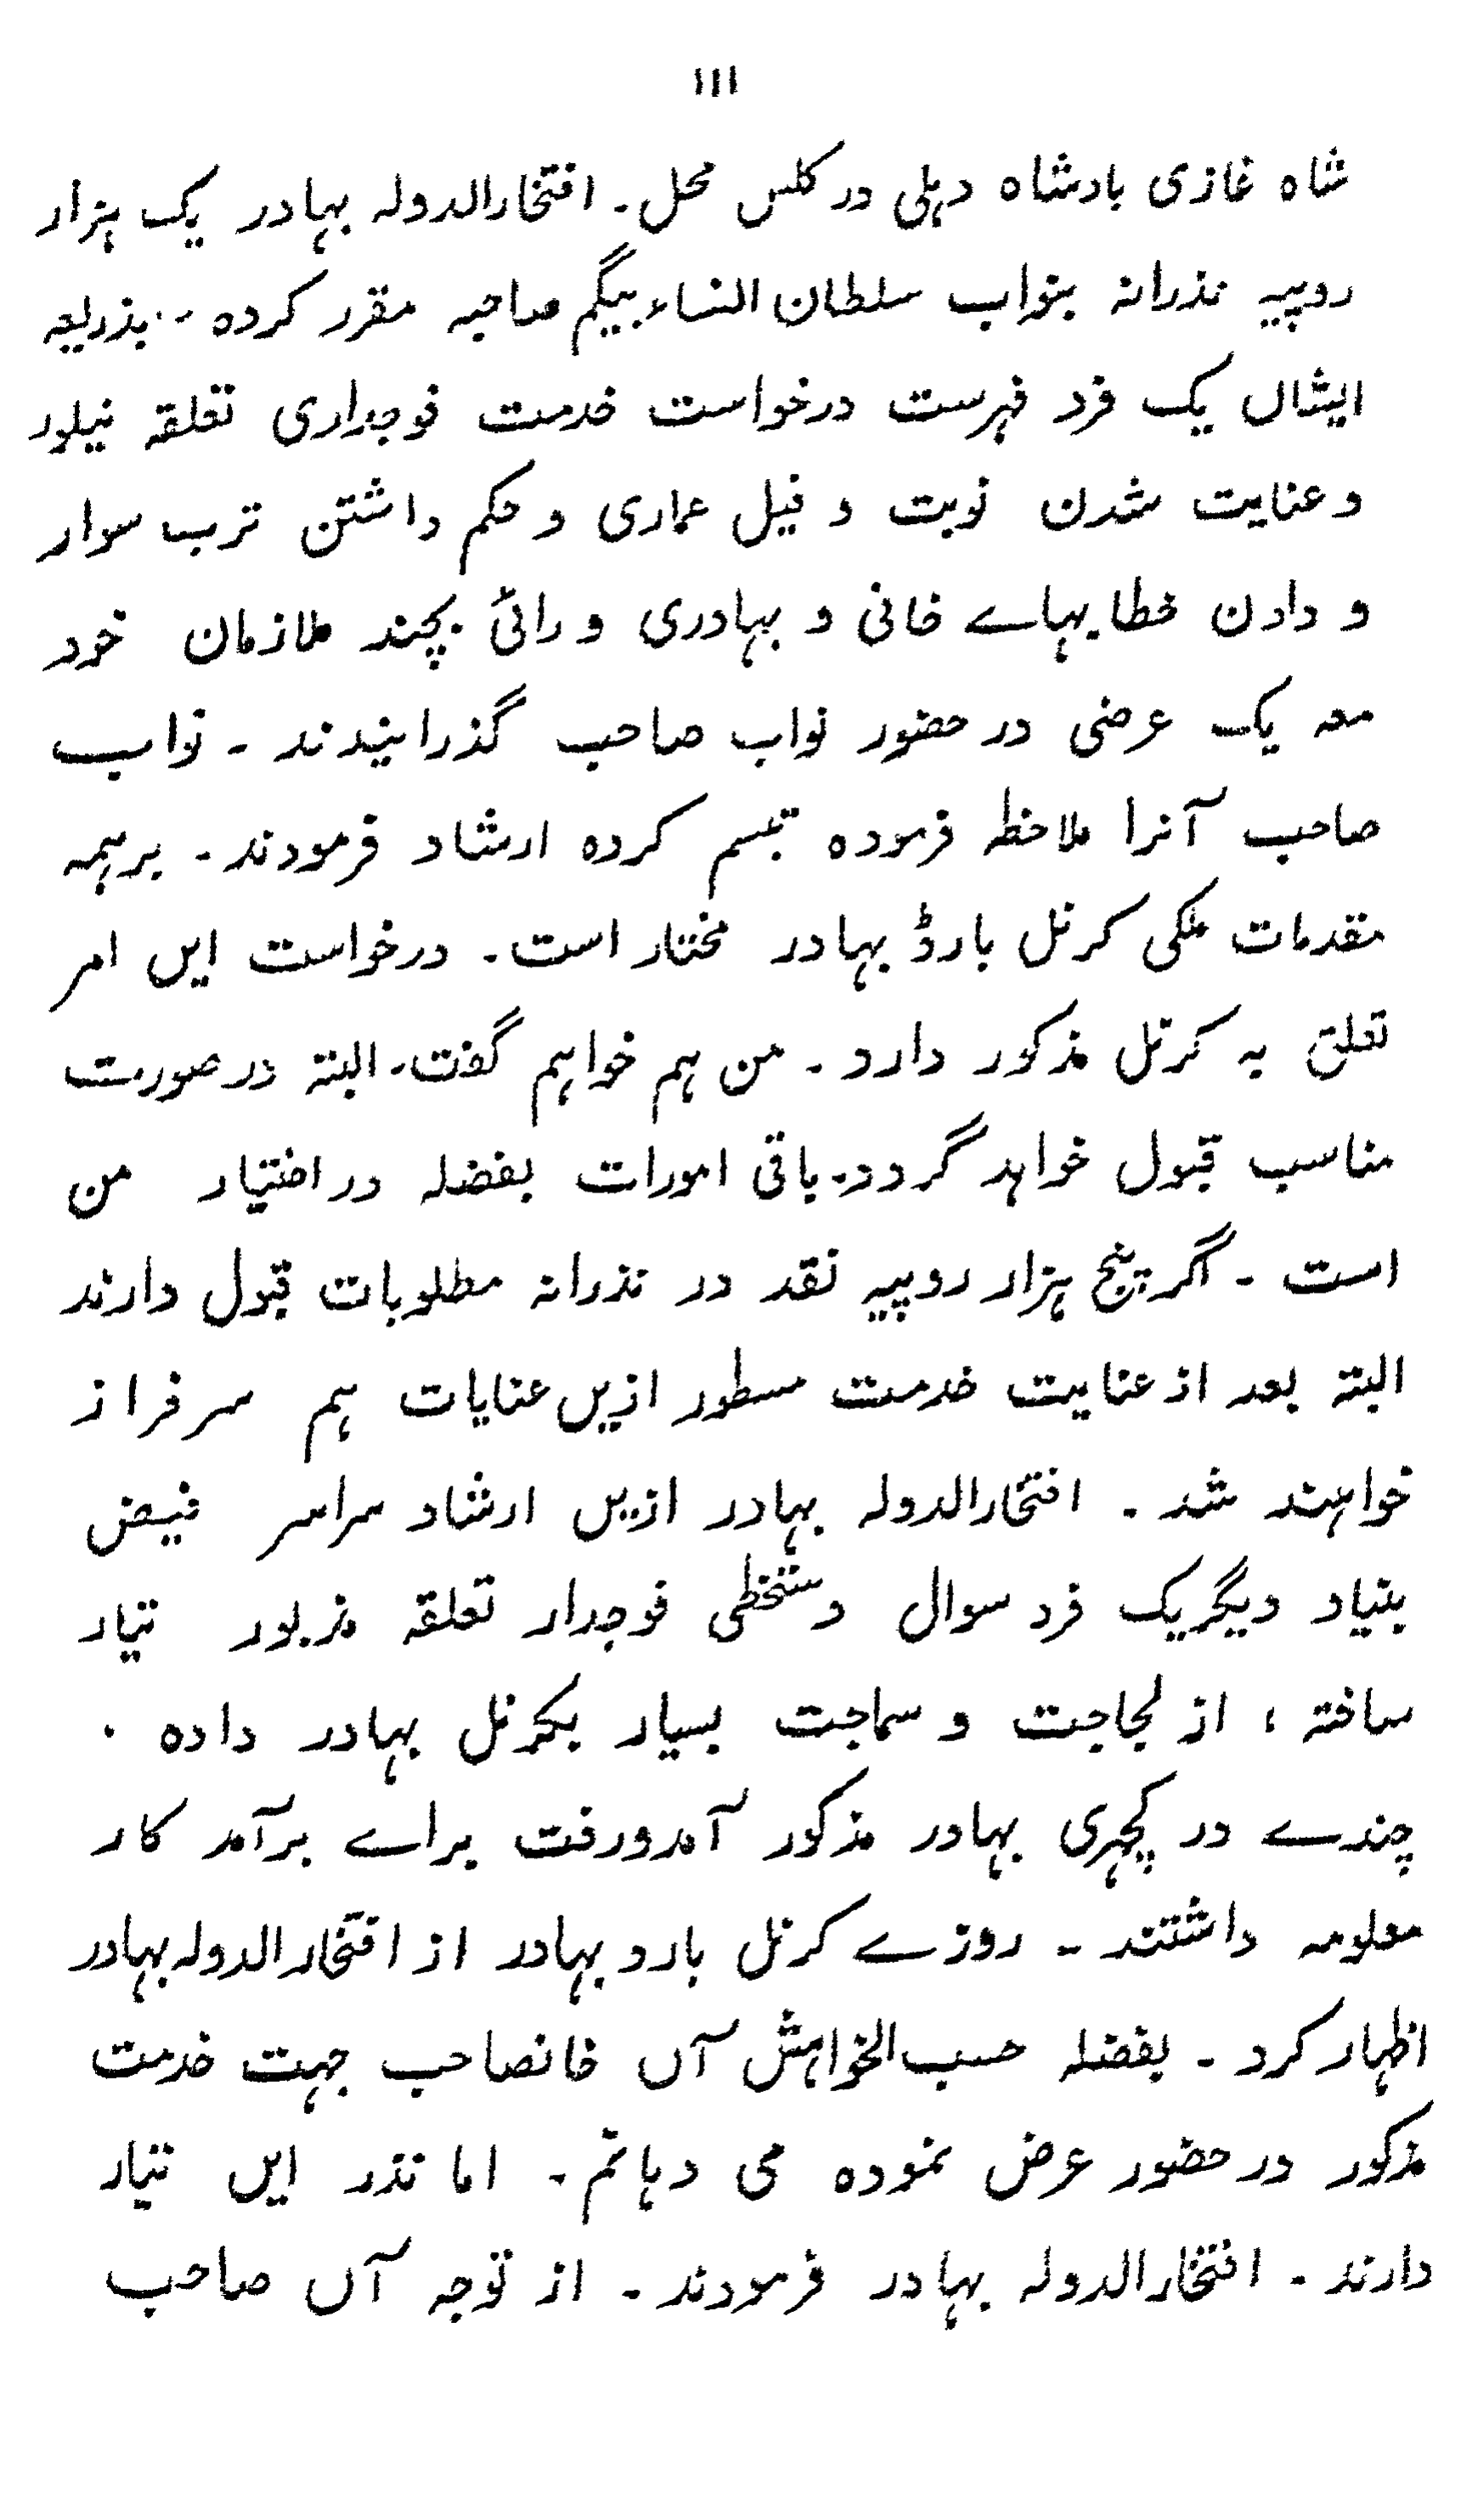 ۱۱۱
شاہ غازی بادشاہ دہلی در کلس محل۔ افتخارالدولہ بہادر یک ہزار
روپیہ نذرانہ بنواب سلطان النساء بیگم صاحبہ مقرر کردہ ۔۔ بذریعہ
ایشاں یک فرد فہرست درخواست خدمت فوجداری تعلقہ نیلور
و عنایت شدن نوبت و فیل عماری و حکم داشتن ترب سوار
و دادن خطابہاے خانی و بہادری و رائی بچند ملازمان خود
معہ یک عرضی در حضور نواب صاحب گذرانیدند ۔ نواب
صاحب آنرا ملاحظہ فرمودہ تبسم کردہ ارشاد فرمودند۔ برہمہ
مقدمات ملکی کرنل بارڈ بہادر مختار است۔ درخواست ایں امر
تعلق بہ کرنل مذکور دارد۔ من ہم خواہم گفت۔ البتہ در صورت
مناسب قبول خواہد گردد۔ باقی امورات بفضلہ در اختیار من
است ۔ اگر پنج ہزار روپیہ نقد در نذرانہ مطلوبات قبول دارند
البتہ بعد از عنایت خدمت مسطور ازیں عنایات ہم سرفراز
خواہند شد ۔ افتخارالدولہ بہادر ازیں ارشاد سراسر فیض
بنیاد دیگر یک فرد سوال دستخطی فوجدار تعلقہ مزبور تیار
ساختہ ، از لجاجت و سماجت بسیار بکرنل بہادر دادہ ۔
چندے در کچہری بہادر مذکور آمدورفت براے برآمد کار
معلومہ داشتند ۔ روزے کرنل بارد بہادر از افتخارالدولہ بہادر
اظہار کرد ۔ بفضلہ حسب الخواہش آں خانصاحب جہت خدمت
مذکور در حضور عرض نمودہ می دہانم ۔ اما نذر ایں تیار
دارند ۔ افتخارالدولہ بہادر فرمودند ۔ از توجہ آں صاحب